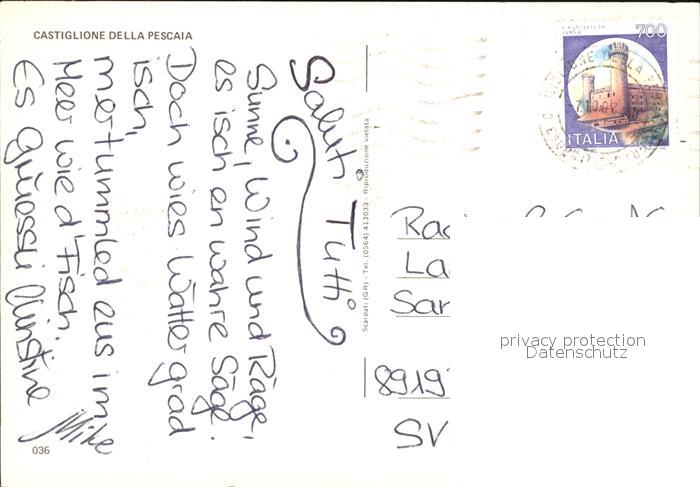 CASTIGLIONE DELLA PESCAIA
Saluti Tutti
Sunne, Wind und Räge,
es isch en wahre Säge.
Doch wies Wätter grad
isch,
mer tummled eus im
Meer wie d'Fisch.
Es grüessli
Mike
036
Scarpati (GR) - Tel. (0564) 413033 - Riproduzione vietata
700
ITALIA
La
Sar
8919
SV
privacy protection
Datenschutz